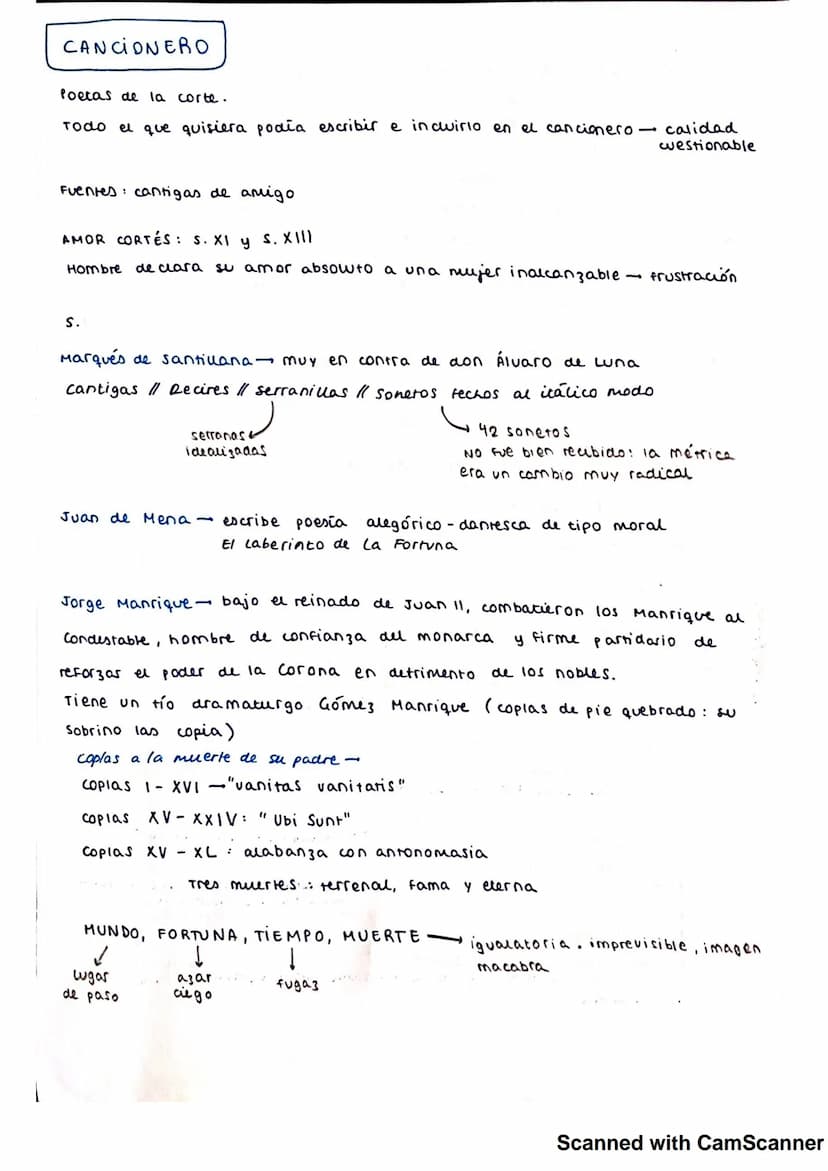 CANCIONERO
Poetas de la corte.
Todo el que quisiera podía escribir e incluirlo en el cancionero → calidad
cuestionable
Fuentes: cantigas de amigo
AMOR CORTÉS: S. XI y S. XIII
Hombre declara su amor absoluto a una mujer inalcanzable → frustración
S.
Marqués de Santillana → muy en contra de don Álvaro de Luna
Cantigas // Decires // serranillas // Sonetos fechos al itálico modo
serranas
idealizadas
42 sonetos
No fue bien recibido: la métrica
era un cambio muy radical
Juan de Mena → escribe poesía alegórico-dantesca de tipo moral
El Laberinto de La Fortuna
Jorge Manrique → bajo el reinado de Juan II, combatieron los Manrique al
Condestable, hombre de confianza del monarca y firme partidario de
reforzar el poder de la Corona en detrimento de los nobles.
Tiene un tío dramaturgo Gómez Manrique (coplas de pie quebrado: su
sobrino las copia)
Coplas a la muerte de su padre →
Coplas I - XVI → "vanitas vanitaris"
Coplas XV - XXIV: "Ubi Sunt"
Coplas XV - XL: alabanza con antonomasia
Tres muertes: terrenal, fama y eterna
MUNDO, FORTUNA, TIEMPO, MUERTE → igualatoria, imprevisible, imagen
macabra
lugar
de paso
azar
ciego
fugaz
Scanned with CamScanner